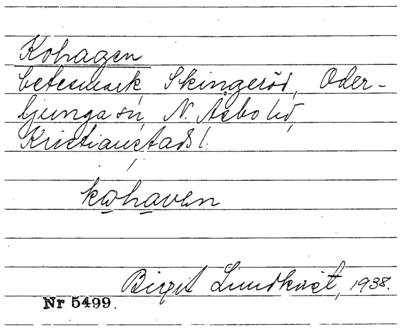 Kohagen
betesmark, Skingeröd, Oder-
ljunga sn, N. Åsbo hd,
Kristianstads l.
kohaven
Birgit Lundkvist, 1938.
Nr 5499.